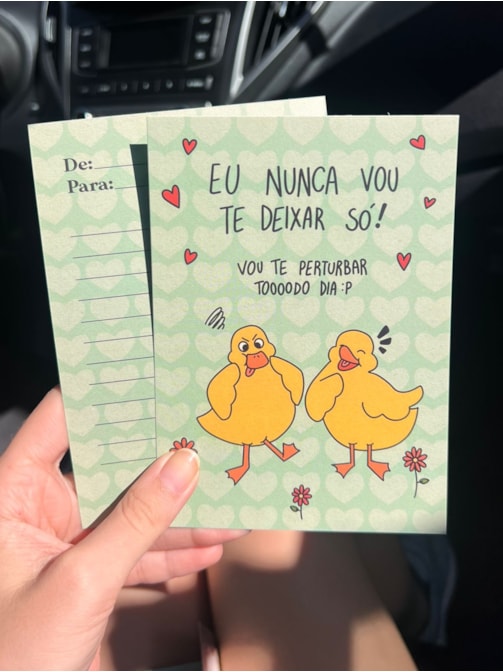 De:
Para:
EU NUNCA VOU
TE DEIXAR SÓ!
VOU TE PERTURBAR
TOOOODO DIA :P